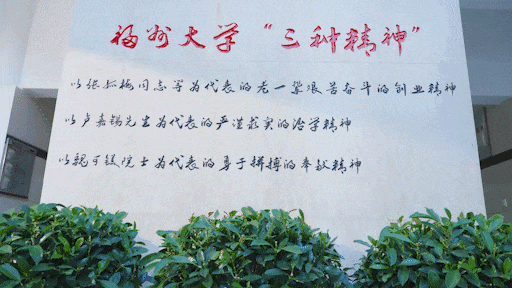 福州大学“三种精神”
以张孤梅同志等为代表的老一辈艰苦奋斗的创业精神
以卢嘉锡先生为代表的严谨求实的治学精神
以魏可镁院士为代表的勇于拼搏的奉献精神